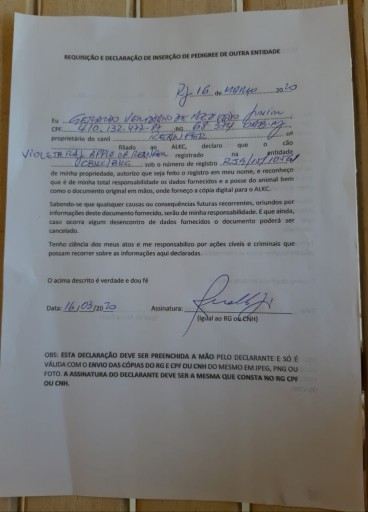 REQUISIÇÃO E DECLARAÇÃO DE INSERÇÃO DE PEDIGREE DE OUTRA ENTIDADE
RJ, 16 de MARÇO 2020
Eu
CPF 410.132.477- RG
proprietário do canil nº
filiado ao ALKC, declaro que o cão
registrado na entidade
sob o número de registro
de minha propriedade, autorizo que seja feito o registro em meu nome, e reconheço
que é de minha total responsabilidade os dados fornecidos e a posse do animal bem
como o documento original em mãos, onde forneço a cópia digital para o ALKC.
Sabendo-se que quaisquer causas ou consequências futuras recorrentes, oriundos por
informações deste documento fornecido, serão de minha responsabilidade. E que ainda,
caso ocorra algum desencontro de dados fornecidos o documento poderá ser
cancelado.
Tenho ciência dos meus atos e me responsabilizo por ações cíveis e criminais que
possam recorrer sobre as informações aqui declaradas.
O acima descrito é verdade e dou fé
Data: 16/03/2020 Assinatura:
(Igual ao RG ou CNH)
OBS: ESTA DECLARAÇÃO DEVE SER PREENCHIDA A MÃO PELO DECLARANTE E SÓ É
VÁLIDA COM O ENVIO DAS CÓPIAS DO RG E CPF OU CNH DO MESMO EM JPEG, PNG OU
FOTO. A ASSINATURA DO DECLARANTE DEVE SER A MESMA QUE CONSTA NO RG CPF
OU CNH.